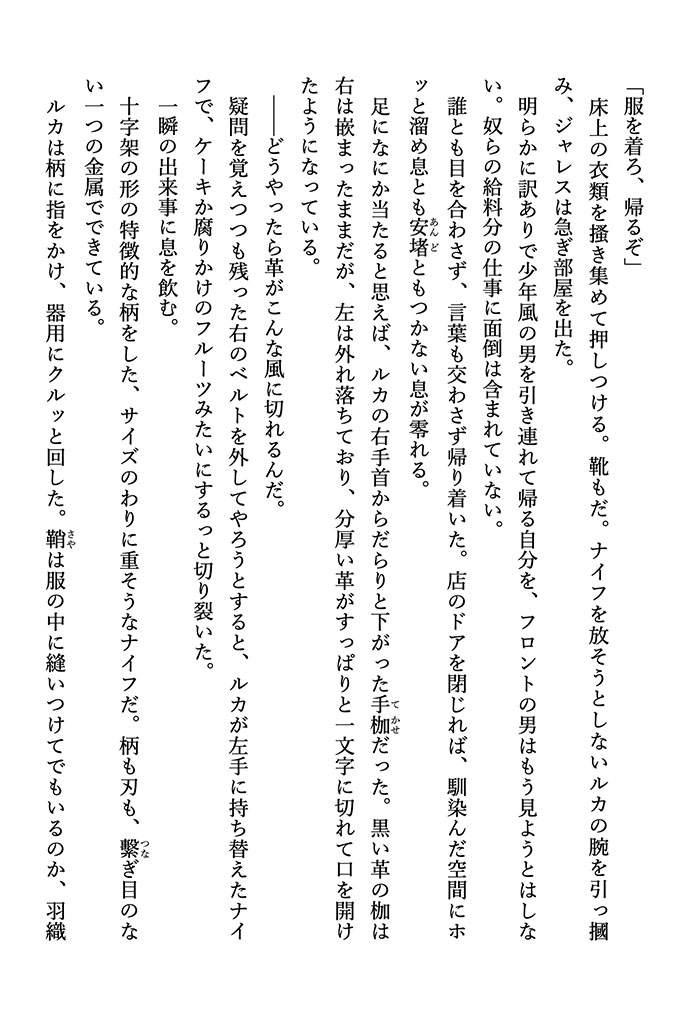 「服を着ろ、帰るぞ」
　床上の衣類を掻き集めて押しつける。靴もだ。ナイフを放そうとしないルカの腕を引っ摑
み、ジャレスは急ぎ部屋を出た。
　明らかに訳ありで少年風の男を引き連れて帰る自分を、フロントの男はもう見ようとはしな
い。奴らの給料分の仕事に面倒は含まれていない。
　誰とも目を合わさず、言葉も交わさず帰り着いた。店のドアを閉じれば、馴染んだ空間にホ
ッと溜め息とも安堵ともつかない息が零れる。
　足になにか当たると思えば、ルカの右手首からだらりと下がった手枷だった。黒い革の枷は
右は嵌まったままだが、左は外れ落ちており、分厚い革がすっぱりと一文字に切れて口を開け
たようになっている。
　――どうやったら革がこんな風に切れるんだ。
　疑問を覚えつつも残った右のベルトを外してやろうとすると、ルカが左手に持ち替えたナイ
フで、ケーキか腐りかけのフルーツみたいにするっと切り裂いた。
　一瞬の出来事に息を飲む。
　十字架の形の特徴的な柄をした、サイズのわりに重そうなナイフだ。柄も刃も、繋ぎ目のな
い一つの金属でできている。
　ルカは柄に指をかけ、器用にクルッと回した。鞘は服の中に縫いつけてでもいるのか、羽織